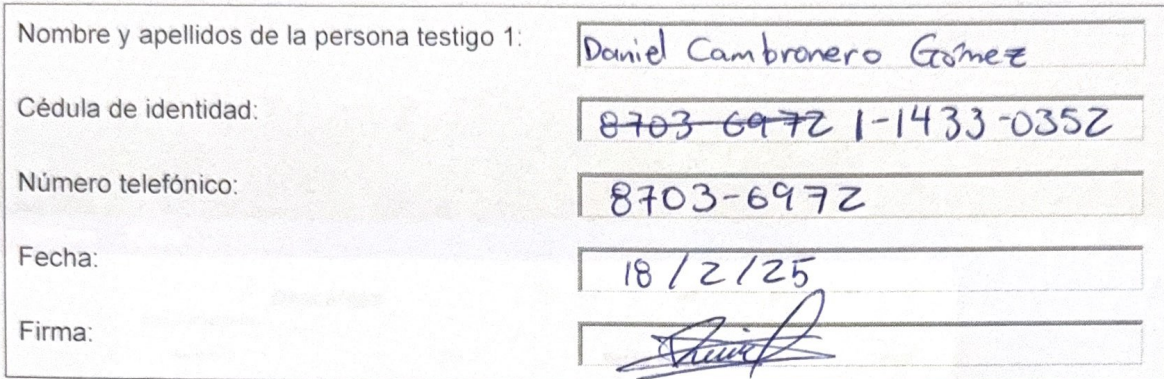 Nombre y apellidos de la persona testigo 1: Daniel Cambronero Gómez
Cédula de identidad: 8703-6972 1-1433-0352
Número telefónico: 8703-6972
Fecha: 18/2/25
Firma: